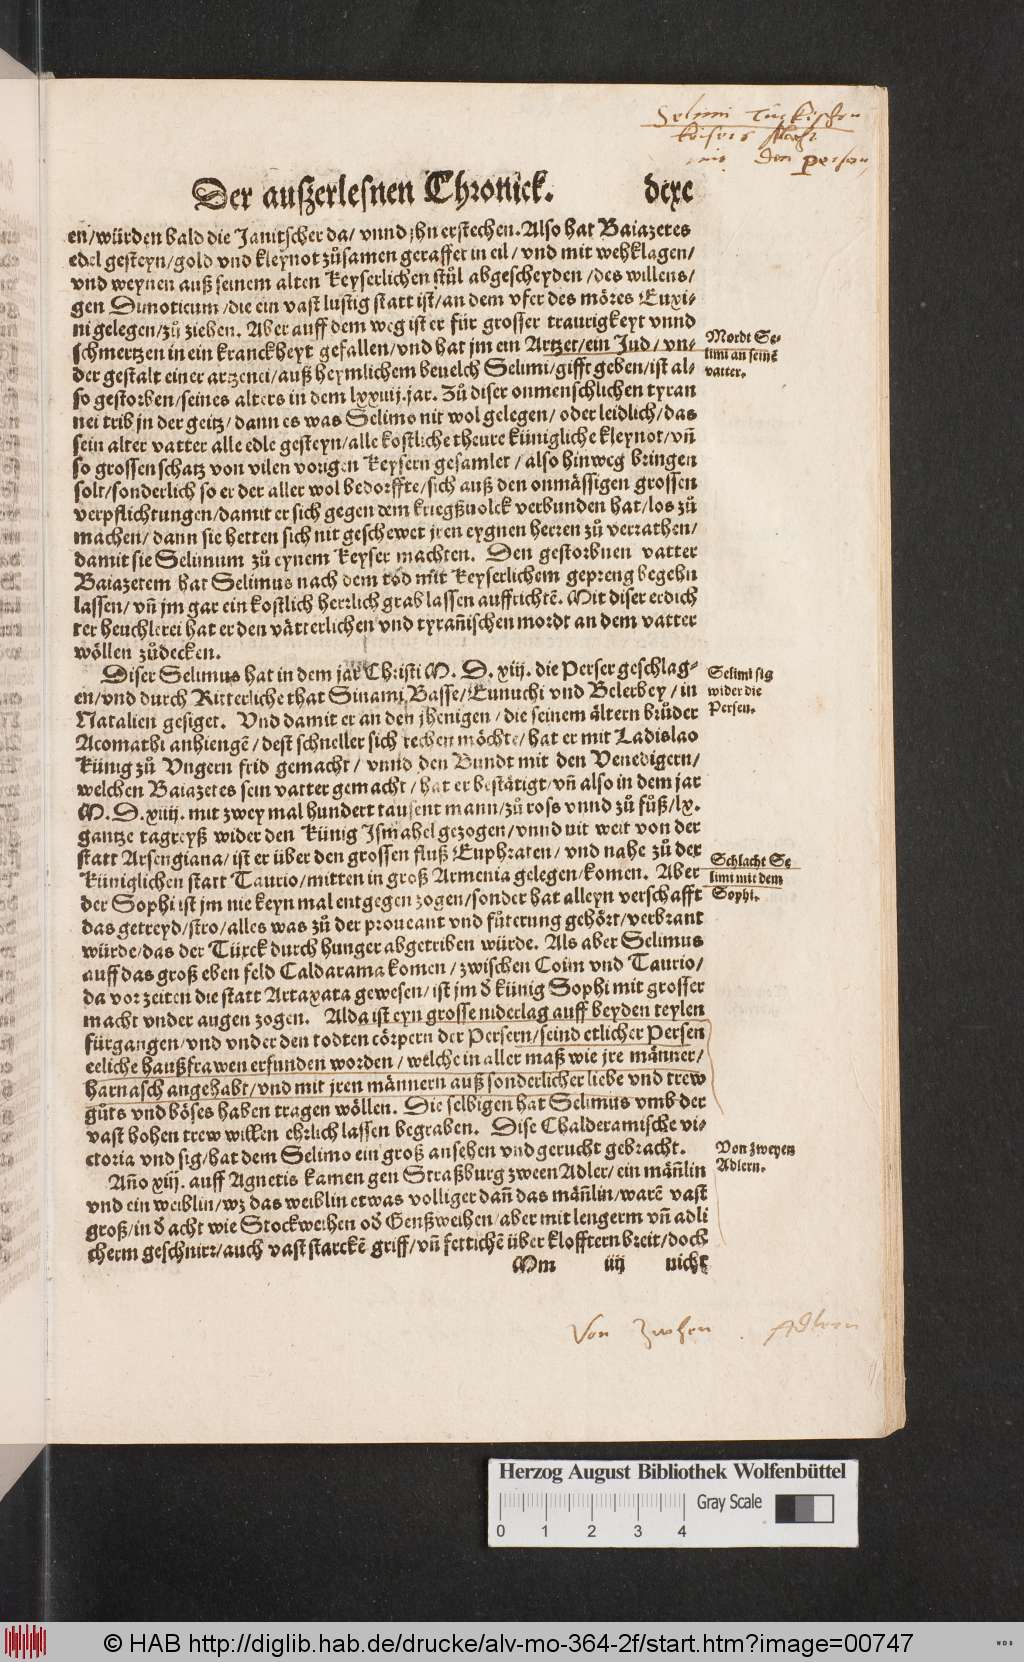 Selimi Türkischen
keisers schlacht
mit den persen
Der auszerlesnen Chronick. dcxc
en/würden bald die Janitscher da/vnnd jhn erstechen. Also hat Baiazetes
edel gesteyn/gold vnd kleynot zůsamen geraffet in eil/vnd mit wehklagen/
vnd weynen auß seinem alten Keyserlichen stůl abgescheyden/des willens/
gen Dimoticum/die ein vast lustig statt ist/an dem vfer des möres Euxi-
ni gelegen/zů ziehen. Aber auff dem weg ist er für grosser traurigkeyt vnnd
schmertzen in ein kranckheyt gefallen/vnd hat jm ein Artzet/ein Jud/vn-
der gestalt einer artzenei/auß heymlichem beuelch Selimi/gifft geben/ist al-
so gestorben/seines alters in dem lxxiiij.jar. Zů diser onmenschlichen tyran
nei trib jn der geitz/dann es was Selimo nit wol gelegen/oder leidlich/das
sein alter vatter alle edle gesteyn/alle kostliche theure künigliche kleynot/vñ
so grossen schatz von vilen vorigen Keysern gesamlet/also hinweg bringen
solt/sonderlich so er der aller wol bedorffte/sich auß den onmässigen grossen
verpflichtungen/damit er sich gegen dem kriegßuolck verbunden hat/los zů
machen/dann sie hetten sich nit geschewet jren eygnen herren zů verrathen/
damit sie Selimum zů eynem Keyser machten. Den gestorbnen vatter
Baiazetem hat Selimus nach dem tod mit Keyserlichem gepreng begehn
lassen/vñ jm gar ein kostlich herrlich grab lassen auffrichtē. Mit diser erdich
ter heuchlerei hat er den vätterlichen vnd tyrañischen mordt an dem vatter
wöllen zůdecken.
Mordt Se-
limi an seinē
vatter.
Diser Selimus hat in dem jar Christi M. D. xiij. die Perser geschlag-
en/vnd durch Ritterliche that Sinami Basse/Eunuchi vnd Belerbey/in
Natalien gesiget. Vnd damit er an den jhenigen/die seinem ältern brůder
Acomathi anhiengē/dest schneller sich rechen möchte/hat er mit Ladislao
Künig zů Vngern frid gemacht/vnnd den Bundt mit den Venedigern/
welchen Baiazetes sein vatter gemacht/hat er bestätigt/vñ also in dem jar
M. D. xiiij. mit zwey mal hundert tausent mann/zů ross vnnd zů fůß/lx.
gantze tagreyß wider den Künig Ismahel gezogen/vnnd nit weit von der
statt Arsengiana/ist er über den grossen fluß Euphraten/vnd nahe zů der
Küniglichen statt Taurio/mitten in groß Armenia gelegen/komen. Aber
der Sophi ist jm nie keyn mal entgegen zogen/sonder hat alleyn verschafft
das getreyd/stro/alles was zů der proueant vnd fůterung gehört/verbrant
würde/das der Türck durch hunger abgetriben würde. Als aber Selimus
auff das groß eben feld Caldarama komen/zwischen Coim vnd Taurio/
da vorzeiten die statt Artaxata gewesen/ist jm d künig Sophi mit grosser
macht vnder augen zogen. Alda ist eyn grosse niderlag auff beyden teylen
fürgangen/vnd vnder den todten cörpern der Persern/seind etlicher Persen
eeliche haußfrawen erfunden worden/welche in aller maß wie jre männer/
harnasch angehabt/vnd mit jren männern auß sonderlicher liebe vnd trew
gůts vnd böses haben tragen wöllen. Die selbigen hat Selimus vmb der
vast hohen trew willen ehrlich lassen begraben. Dise Chalderamische vi-
ctoria vnd sig/hat dem Selimo ein groß ansehen vnd gerucht gebracht.
Selimi sig
wider die
Persen.
Schlacht Se
limi mit dem
Sophi.
Año xiij. auff Agnetis kamen gen Straßburg zween Adler/ein mäñlin
vnd ein weiblin/wz das weiblin etwas volliger dañ das mäñlin/warē vast
groß/in d acht wie Stockweihen od Genßweihen/aber mit lengerm vñ adli
cherm geschnirr/auch vast starckē griff/vñ fettichē über klofftern breit/doch
Von zweyen
Adlern.
Mm iiij nicht
Von zwehen Adlern
Herzog August Bibliothek Wolfenbüttel
0 1 2 3 4 Gray Scale
© HAB http://diglib.hab.de/drucke/alv-mo-364-2f/start.htm?image=00747